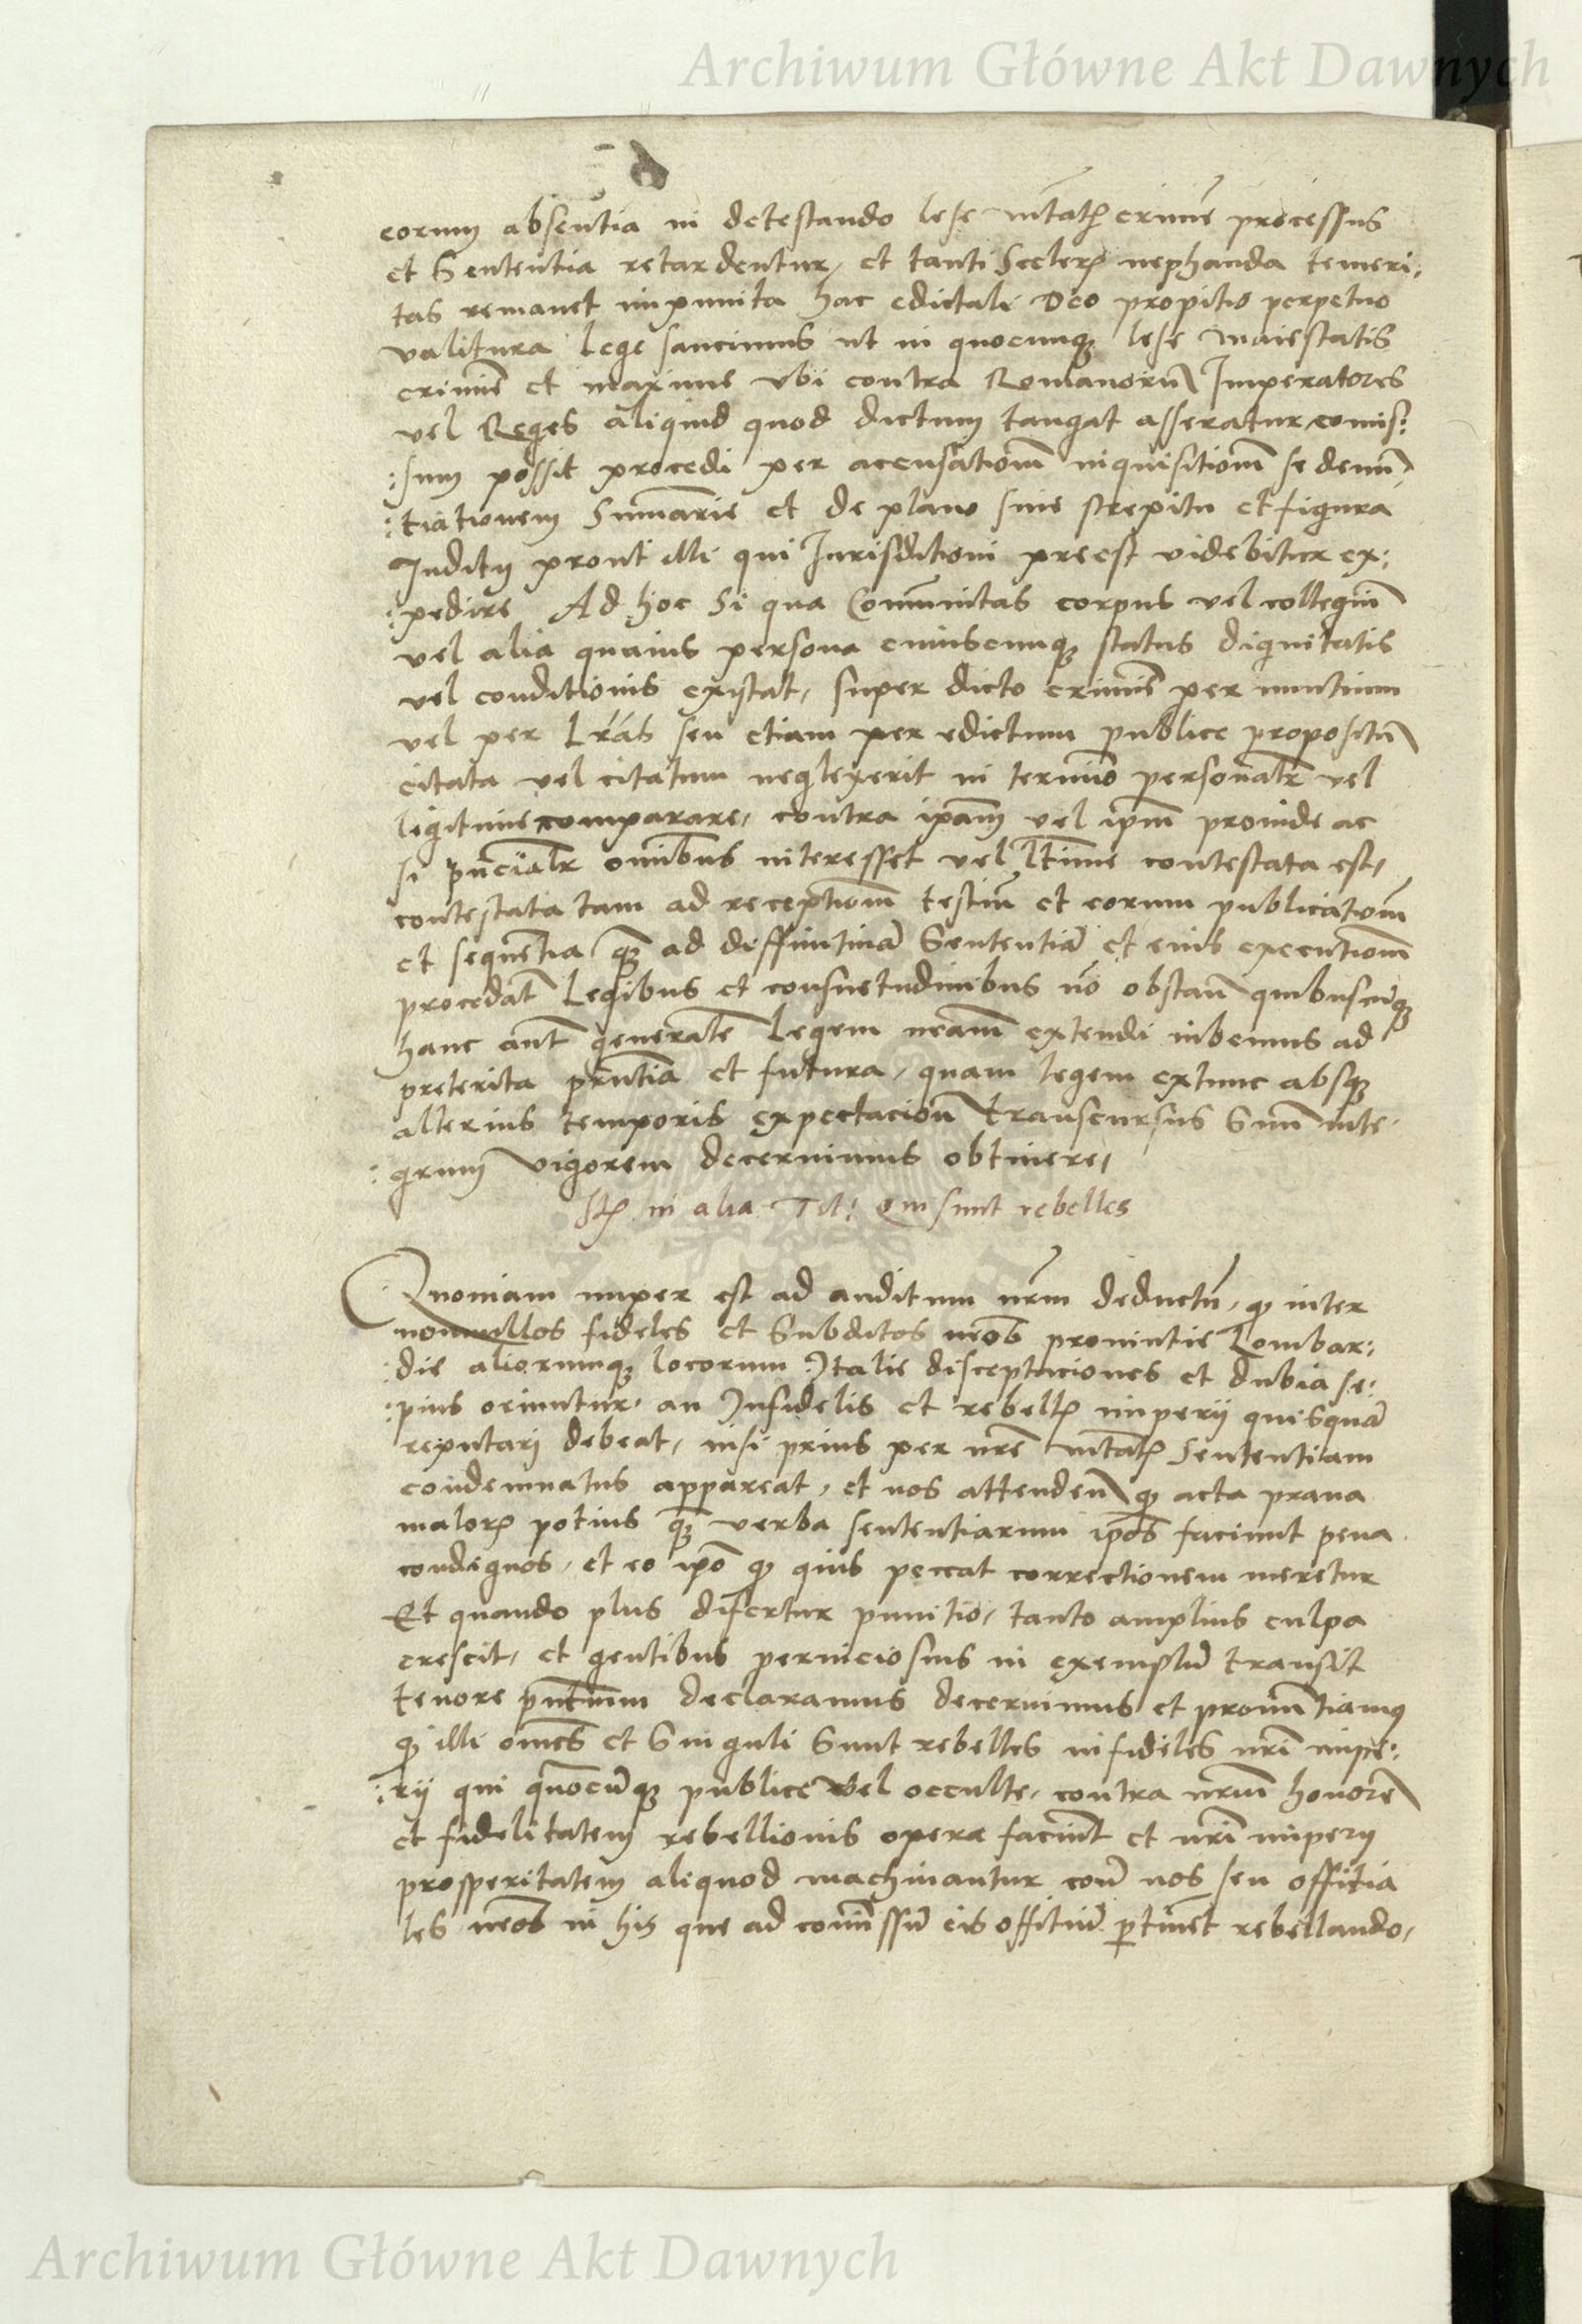 Archiwum Główne Akt Dawnych
eorum absentia in detestando lese mtatꝭ crimīe processus
et Sententia retardentur, et tanti Scelerꝭ nephanda temeri,
tas remanet impunita hac edictali Deo propitio perpetuo
valitura lege sancimus ut in quocumqꝫ lese maiestatis
crimīe et maxime vbi contra Romanorū Imperatores
vel Reges aliquid quod dictum tangat asseratur comis:
:sum possit procedi per accusationē inquisitionē se denū,
:tiationem Sūmarie et de plano sine strepitu et figura
Juditij prout illi qui Jurisditioni preest videbitur ex:
:pedire Ad hoc Si qua Comūnitas corpus vel collegiū
vel alia quauis persona cuiuscumqꝫ status dignitatis
vel conditionis existat, super dicto crimīe per nuntium
vel per Lrās seu etiam per edictum publice propositū
citata vel citatum neglexerit in termīo personalr̄ vel
ligitime comparare, contra ipām vel ipm̄ proinde ac
si pn̄cialr̄ omībus interesset vel ltīme contestata est,
contestata tam ad receptionē testiū et eorum publicationē
et sequentia qꝫ ad diffinitiuā Sententiā et eius executionē
procedat̄ Legibus et consuetudinibus nō obstan̄ quibuscūqꝫ
hanc aut̄ generalē Legem nr̄am extendi iubemus ad
preterita pn̄tia et futura, quam legem extunc absqꝫ
alterius temporis expectacionē transcursus Suū inte,
:grum vigorem decernimus obtinere,
Itꝭ in alia Tit: Qui sunt rebelles
Quoniam nuper est ad auditum nr̄m deductū, qꝫ inter
nonnullos fideles et Subditos nr̄os prouintie Lombar:
:die aliorumqꝫ locorum Italie disceptaciones et dubia se:
:pius oriuntur, an Infidelis et rebellꝭ imperij quisquā
reputari debeat, nisi prius per nr̄e mtatꝭ Sententiam
condemnatus appareat, et nos attenden̄ qꝫ acta praua
malorꝭ potius qꝫ verba sententiarum ipōs faciunt pena
condignos, et eo ipō qꝫ quis peccat correctionem meretur
Et quando plus difertur punitio, tanto amplius culpa
crescit, et gentibus perniciosius in exemplū transit
tenore pn̄tium declaramus decernimus et pronūtiamus
qꝫ illi omēs et Singuli Sunt rebelles infideles nr̄i impe:
:rij qui quōcūqꝫ publice vel occulte, contra nr̄um honorē
et fidelitatem rebellionis opera faciunt et nr̄i imperij
prosperitatem aliquod machinantur conr̄ nos seu offitia
les nr̄os in his que ad comīssū eis offitiū ꝑtinet rebellando,
Archiwum Główne Akt Dawnych